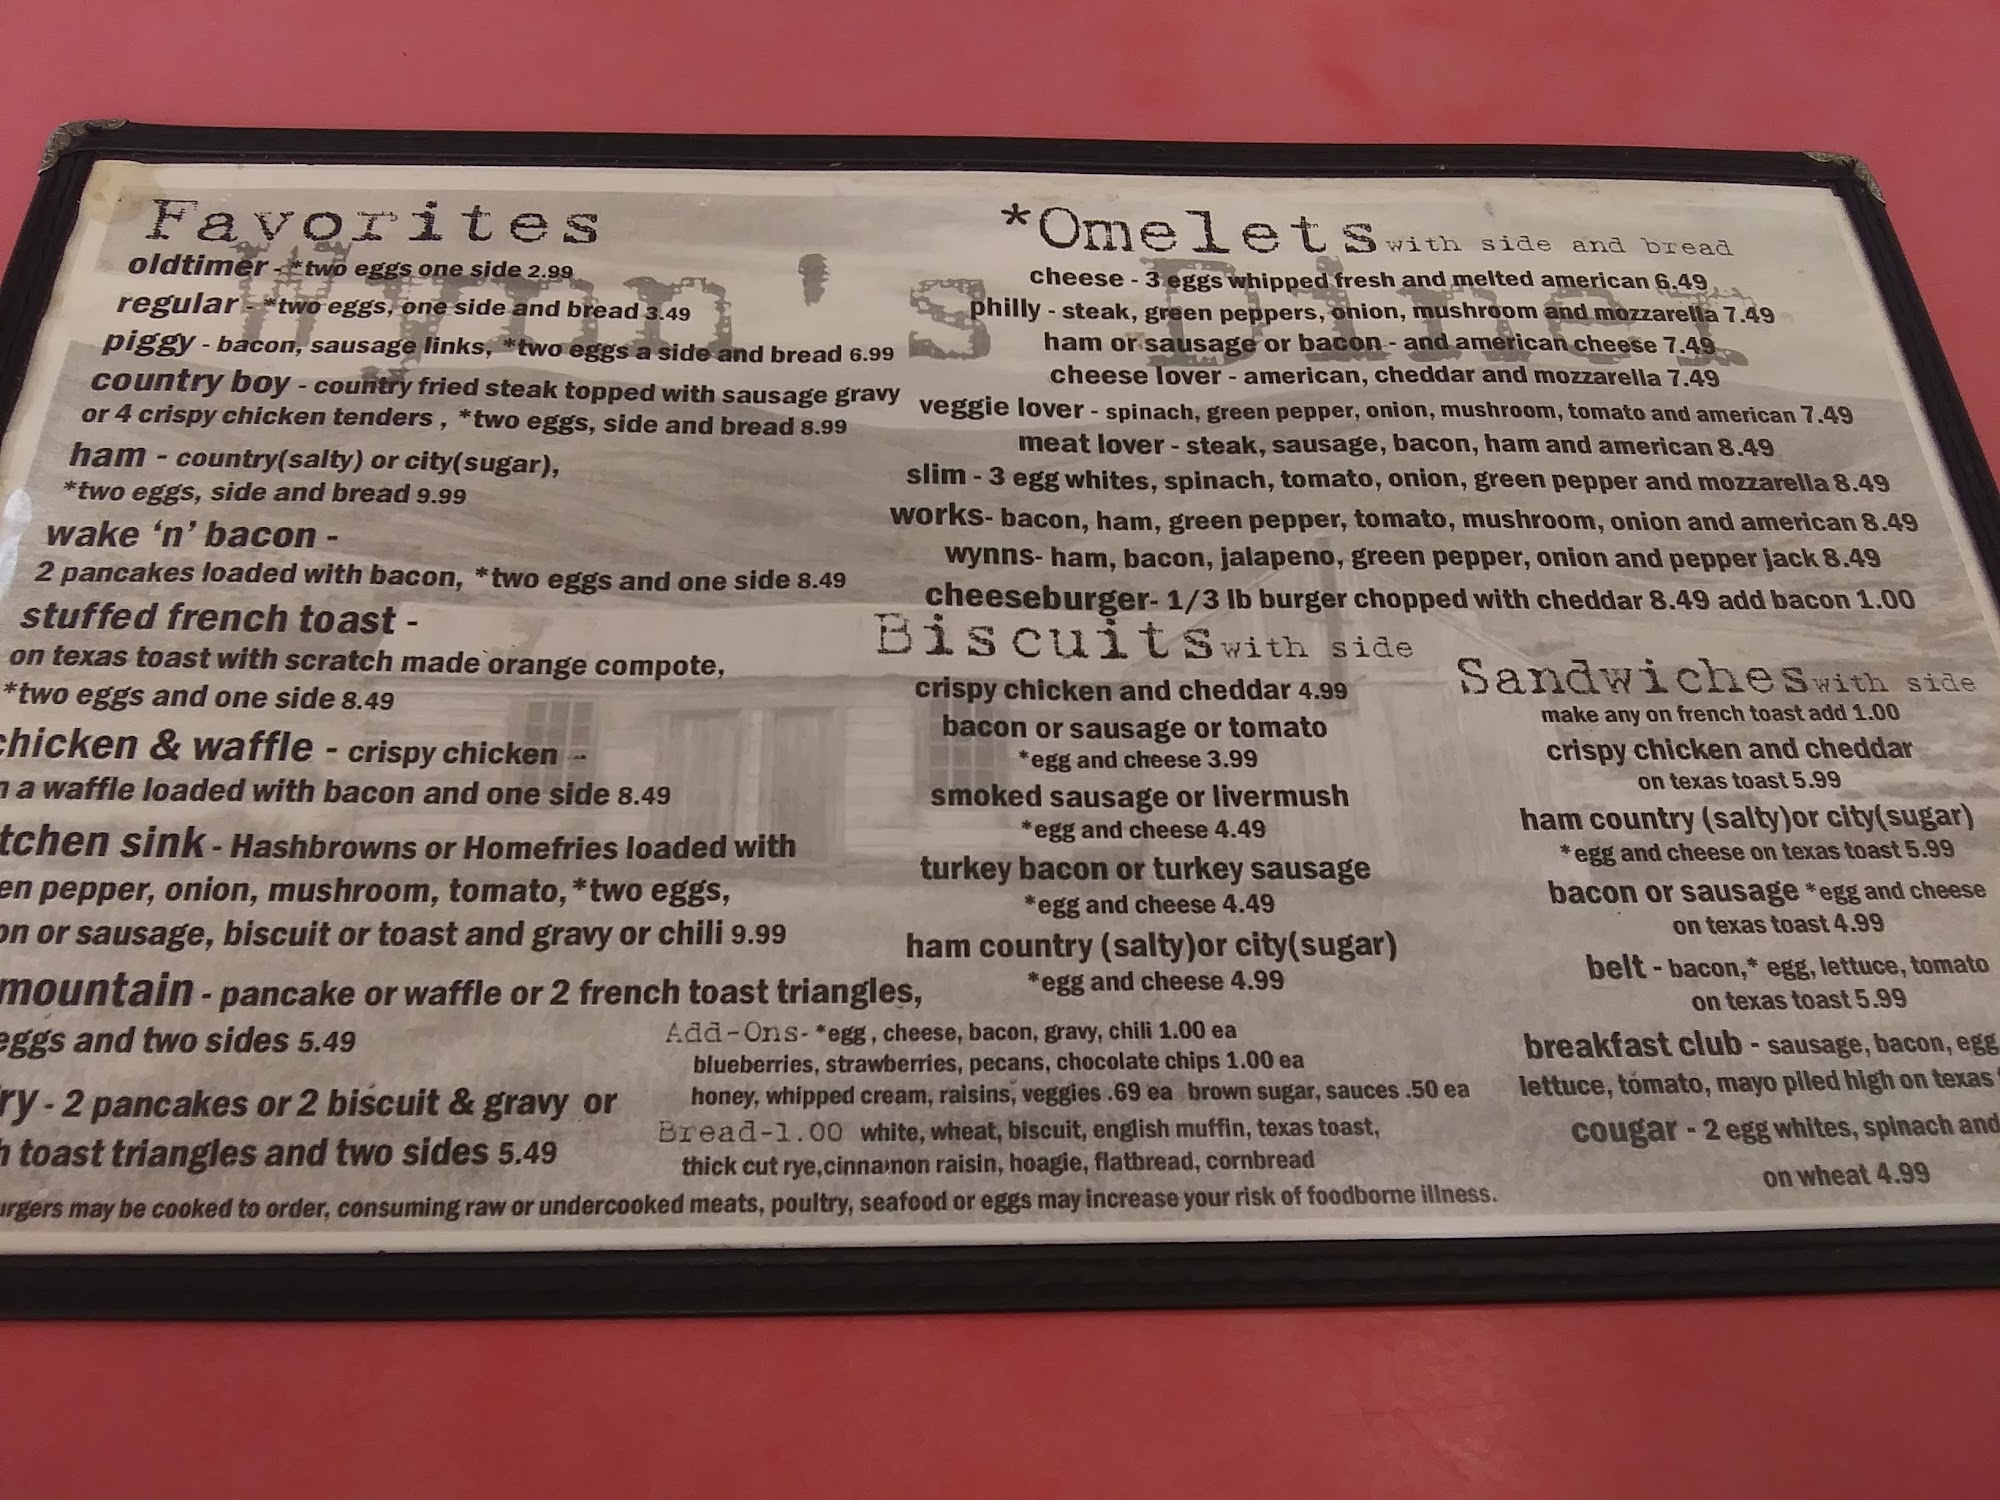 Wynn's Diner
Favorites
oldtimer - *two eggs one side 2.99
regular - *two eggs, one side and bread 3.49
piggy - bacon, sausage links, *two eggs a side and bread 6.99
country boy - country fried steak topped with sausage gravy
or 4 crispy chicken tenders , *two eggs, side and bread 8.99
ham - country(salty) or city(sugar),
*two eggs, side and bread 9.99
wake ‘n’ bacon -
2 pancakes loaded with bacon, *two eggs and one side 8.49
stuffed french toast -
on texas toast with scratch made orange compote,
*two eggs and one side 8.49
chicken & waffle - crispy chicken -
a waffle loaded with bacon and one side 8.49
tchen sink - Hashbrowns or Homefries loaded with
en pepper, onion, mushroom, tomato, *two eggs,
on or sausage, biscuit or toast and gravy or chili 9.99
mountain - pancake or waffle or 2 french toast triangles,
eggs and two sides 5.49
ry - 2 pancakes or 2 biscuit & gravy or
h toast triangles and two sides 5.49
*Omelets with side and bread
cheese - 3 eggs whipped fresh and melted american 6.49
philly - steak, green peppers, onion, mushroom and mozzarella 7.49
ham or sausage or bacon - and american cheese 7.49
cheese lover - american, cheddar and mozzarella 7.49
veggie lover - spinach, green pepper, onion, mushroom, tomato and american 7.49
meat lover - steak, sausage, bacon, ham and american 8.49
slim - 3 egg whites, spinach, tomato, onion, green pepper and mozzarella 8.49
works- bacon, ham, green pepper, tomato, mushroom, onion and american 8.49
wynns- ham, bacon, jalapeno, green pepper, onion and pepper jack 8.49
cheeseburger- 1/3 lb burger chopped with cheddar 8.49 add bacon 1.00
Biscuits with side
crispy chicken and cheddar 4.99
bacon or sausage or tomato
*egg and cheese 3.99
smoked sausage or livermush
*egg and cheese 4.49
turkey bacon or turkey sausage
*egg and cheese 4.49
ham country (salty)or city(sugar)
*egg and cheese 4.99
Sandwiches with side
make any on french toast add 1.00
crispy chicken and cheddar
on texas toast 5.99
ham country (salty)or city(sugar)
*egg and cheese on texas toast 5.99
bacon or sausage *egg and cheese
on texas toast 4.99
belt - bacon,* egg, lettuce, tomato
on texas toast 5.99
breakfast club - sausage, bacon, egg
lettuce, tomato, mayo piled high on texas
cougar - 2 egg whites, spinach and
on wheat 4.99
Add-Ons- *egg , cheese, bacon, gravy, chili 1.00 ea
blueberries, strawberries, pecans, chocolate chips 1.00 ea
honey, whipped cream, raisins, veggies .69 ea brown sugar, sauces .50 ea
Bread-1.00 white, wheat, biscuit, english muffin, texas toast,
thick cut rye,cinnamon raisin, hoagie, flatbread, cornbread
urgers may be cooked to order, consuming raw or undercooked meats, poultry, seafood or eggs may increase your risk of foodborne illness.